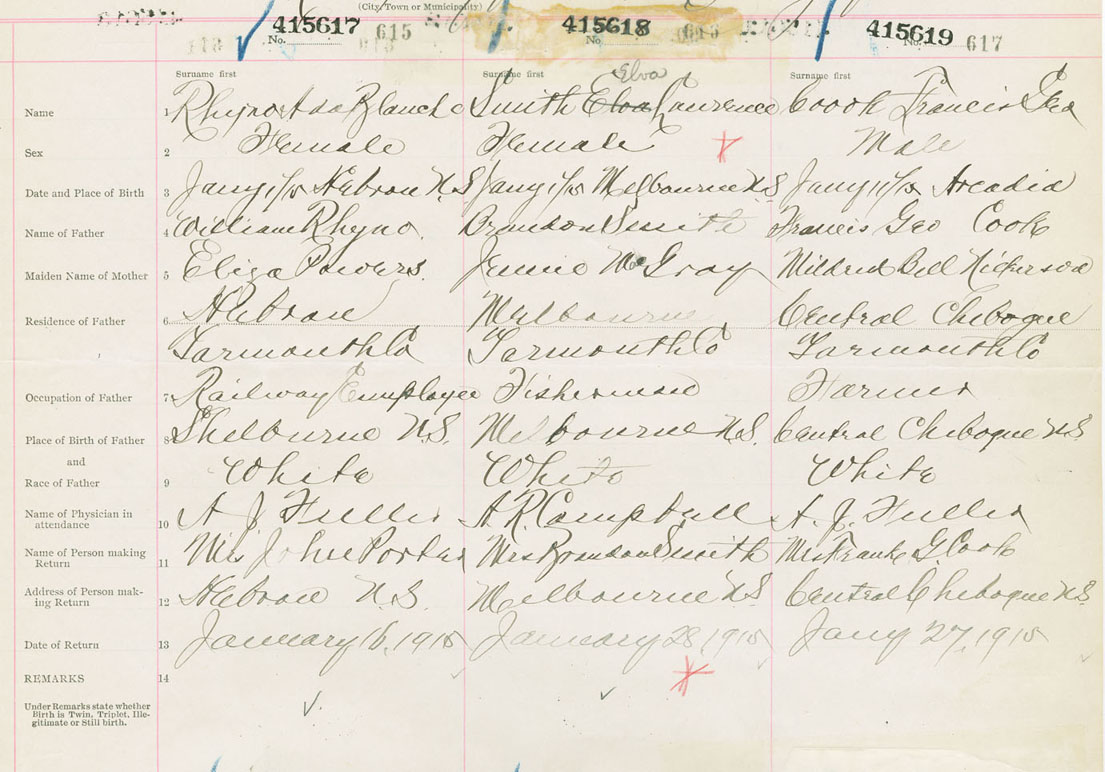 (City, Town or Municipality)
415617 615 415618 415619 617
No. No. No.
Surname first Surname first Surname first
Elva
Name 1 Rhyno Ada Blanche Smith Elva Laurence Coook Francis Geo
Sex 2 Female Female Male
Date and Place of Birth 3 Jany 1/15 Hebron N.S Jany 1/15 Melbourne N.S Jany 11/15 Arcadia
Name of Father 4 William Rhyno. Brandon Smith Francis Geo Cook
Maiden Name of Mother 5 Eliza Powers. Jennie McGray Mildred Bell Nickerson
Residence of Father 6 Hebron Melbourne Central Chebogue
Yarmouth Co Yarmouth Co Yarmouth Co
Occupation of Father 7 Railway Employee Fisherman Farmer
Place of Birth of Father 8 Shelburne N.S. Melbourne N.S. Central Chebogue N.S
and
Race of Father 9 White White White
Name of Physician in
attendance 10 A J Fuller A.R. Campbell A. J. Fuller
Name of Person making
Return 11 Mrs John Porter Mrs Brandon Smith Mrs Frank G. Cook
Address of Person mak-
ing Return 12 Hebron N.S. Melbourne N.S Central Chebogue N.S.
Date of Return 13 January 16, 1915 January 28, 1915 Jany 27, 1915
REMARKS 14
Under Remarks state whether
Birth is Twin, Triplet, Ille-
gitimate or Still birth.